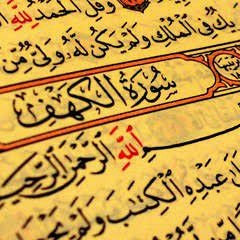 وَقُلِ الْحَمْدُ لِلّٰهِ
فِي الْمُلْكِ وَلَمْ يَكُنْ لَهُ وَلِيٌّ مِنَ
سُورَةُ الْكَهْفِ
اللّٰهِ الرَّحْمٰنِ الرَّحِيمِ
عَبْدِهِ الْكِتَابَ وَلَمْ